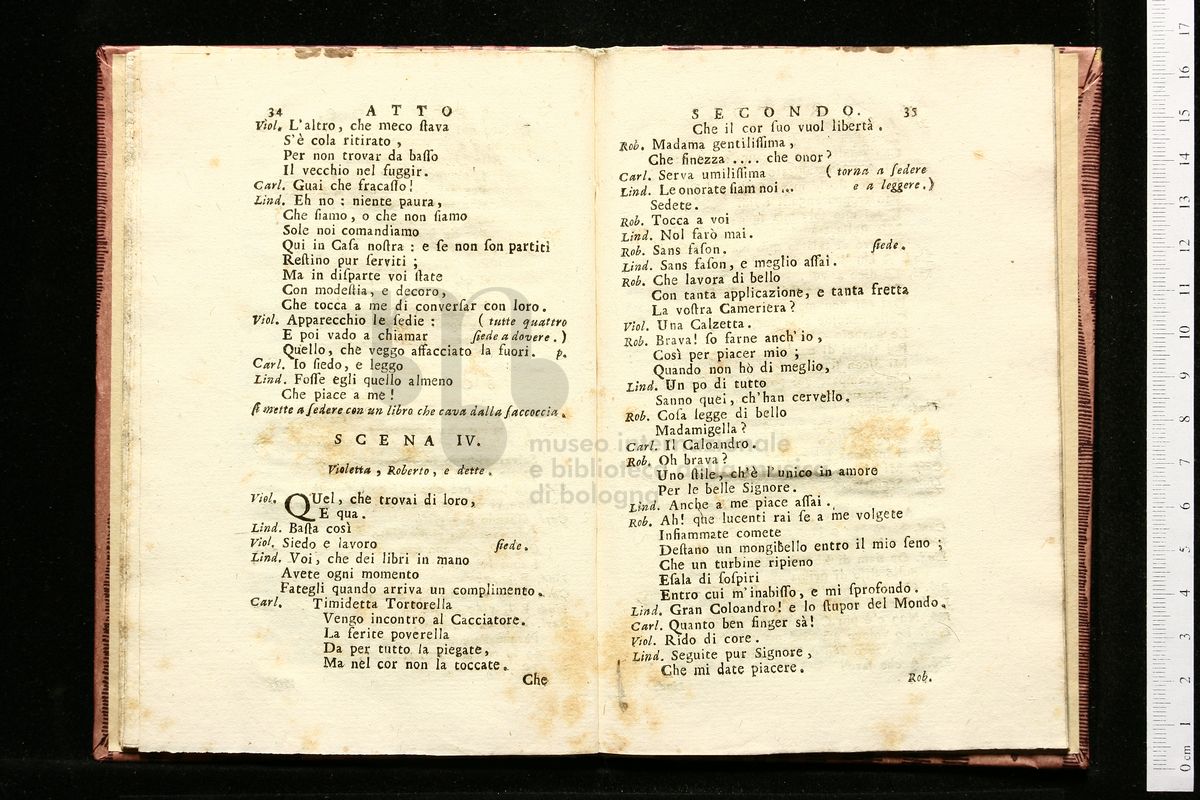 34 ATTO
Viol. L'altro, che meco ſtava
S'è cola ritirato,
Per non trovar da baſſo
Il vecchio nel fuggir.
Carl. Guai che fracaſſo!
Lind. Eh no: niente paura,
Che ſiamo, o che non ſiamo
Sole noi comandiamo
Qui in Caſa noſtra: e ſe non ſon partiti
Reſtino pur ſerviti;
Ma in diſparte voi ſtate
Con modeſtia, e decoro,
Che tocca a me di converſar con loro.
Viol. Apparecchio le ſedie: (tutte quattro
E poi vado a chiamar ſiede a dovere.)
Quello, che veggo affacciato la fuori. p.
Carl. Io ſiedo, e leggo
Lind. Foſſe egli quello almeno
Che piace a me!
ſi mette a ſedere con un libro che cava dalla ſaccoccia.
SCENA IV.
Violetta, Roberto, e dette.
Viol. QUel, che trovai di loro,
E qua.
Lind. Baſta così
Viol. Siedo e lavoro ſiede.
Lind. Voi, che dei libri in mano
Avete ogni momento
Fategli quando arriva un complimento.
Carl. Timidetta Tortorella
Vengo incontro al Cacciatore.
La ferite poverella
Da per tutto la piegate,
Ma nel cor non la toccate.
Che
SECONDO. 35
Che il cor ſuo vuol libertà.
Rob. Madama gentiliſſima,
Che finezza .... che onor?
Carl. Serva umiliſſima (torna a ſedere
Lind. Le onorate ſiam noi... e a leggere.)
Sedete.
Rob. Tocca a voi
Lind. Nol farò mai.
Rob. Sans faſon. ſiede.
Lind. Sans faſon, e meglio aſſai.
Rob. Che lavora di bello
Con tanta applicazione, e tanta fretta
La voſtra Cameriera?
Viol. Una Calzetta.
Rob. Brava! ſo farne anch'io,
Così per piacer mio;
Quando non hò di meglio,
Lind. Un po di tutto
Sanno quei, ch'han cervello.
Rob. Coſa legge di bello
Madamigella?
Carl. Il Caloandro.
Rob. Oh brava?
Uno ſtile, ch'è l'unico in amore
Per le belle Signore.
Lind. Anche a me piace aſſai.
Rob. Ah! que lucenti rai ſe a me volgete
Infiammate comete
Deſtano un mongibello entro il mio ſeno;
Che un turbine ripieno
Eſala di ſoſpiri
Entro cui m'inabiſſo, e mi ſprofondo.
Lind. Gran Coloandro! e lo ſtupor del Mondo.
Carl. Quanto ben finger sà!
Viol. Rido di core.
Lind. Seguite pur Signore,
Che mi date piacere.
Rob.
museo internazionale
e biblioteca della musica
di bologna
0 cm 1 2 3 4 5 6 7 8 9 10 11 12 13 14 15 16 17